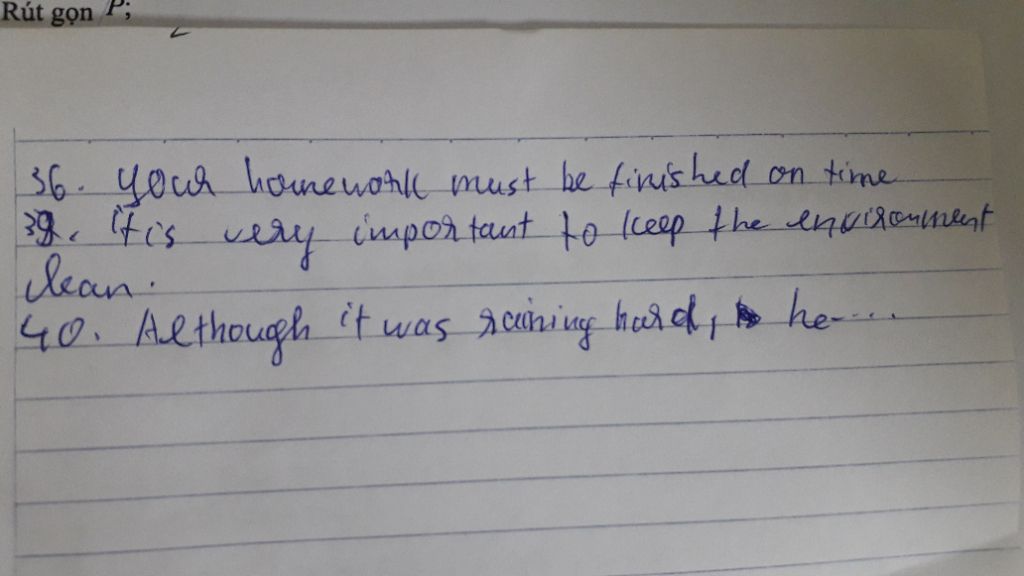 Rút gọn P;
36. your homework must be finished on time
39. it is very important to keep the environment
clean.
40. Although it was raining hard, he-...